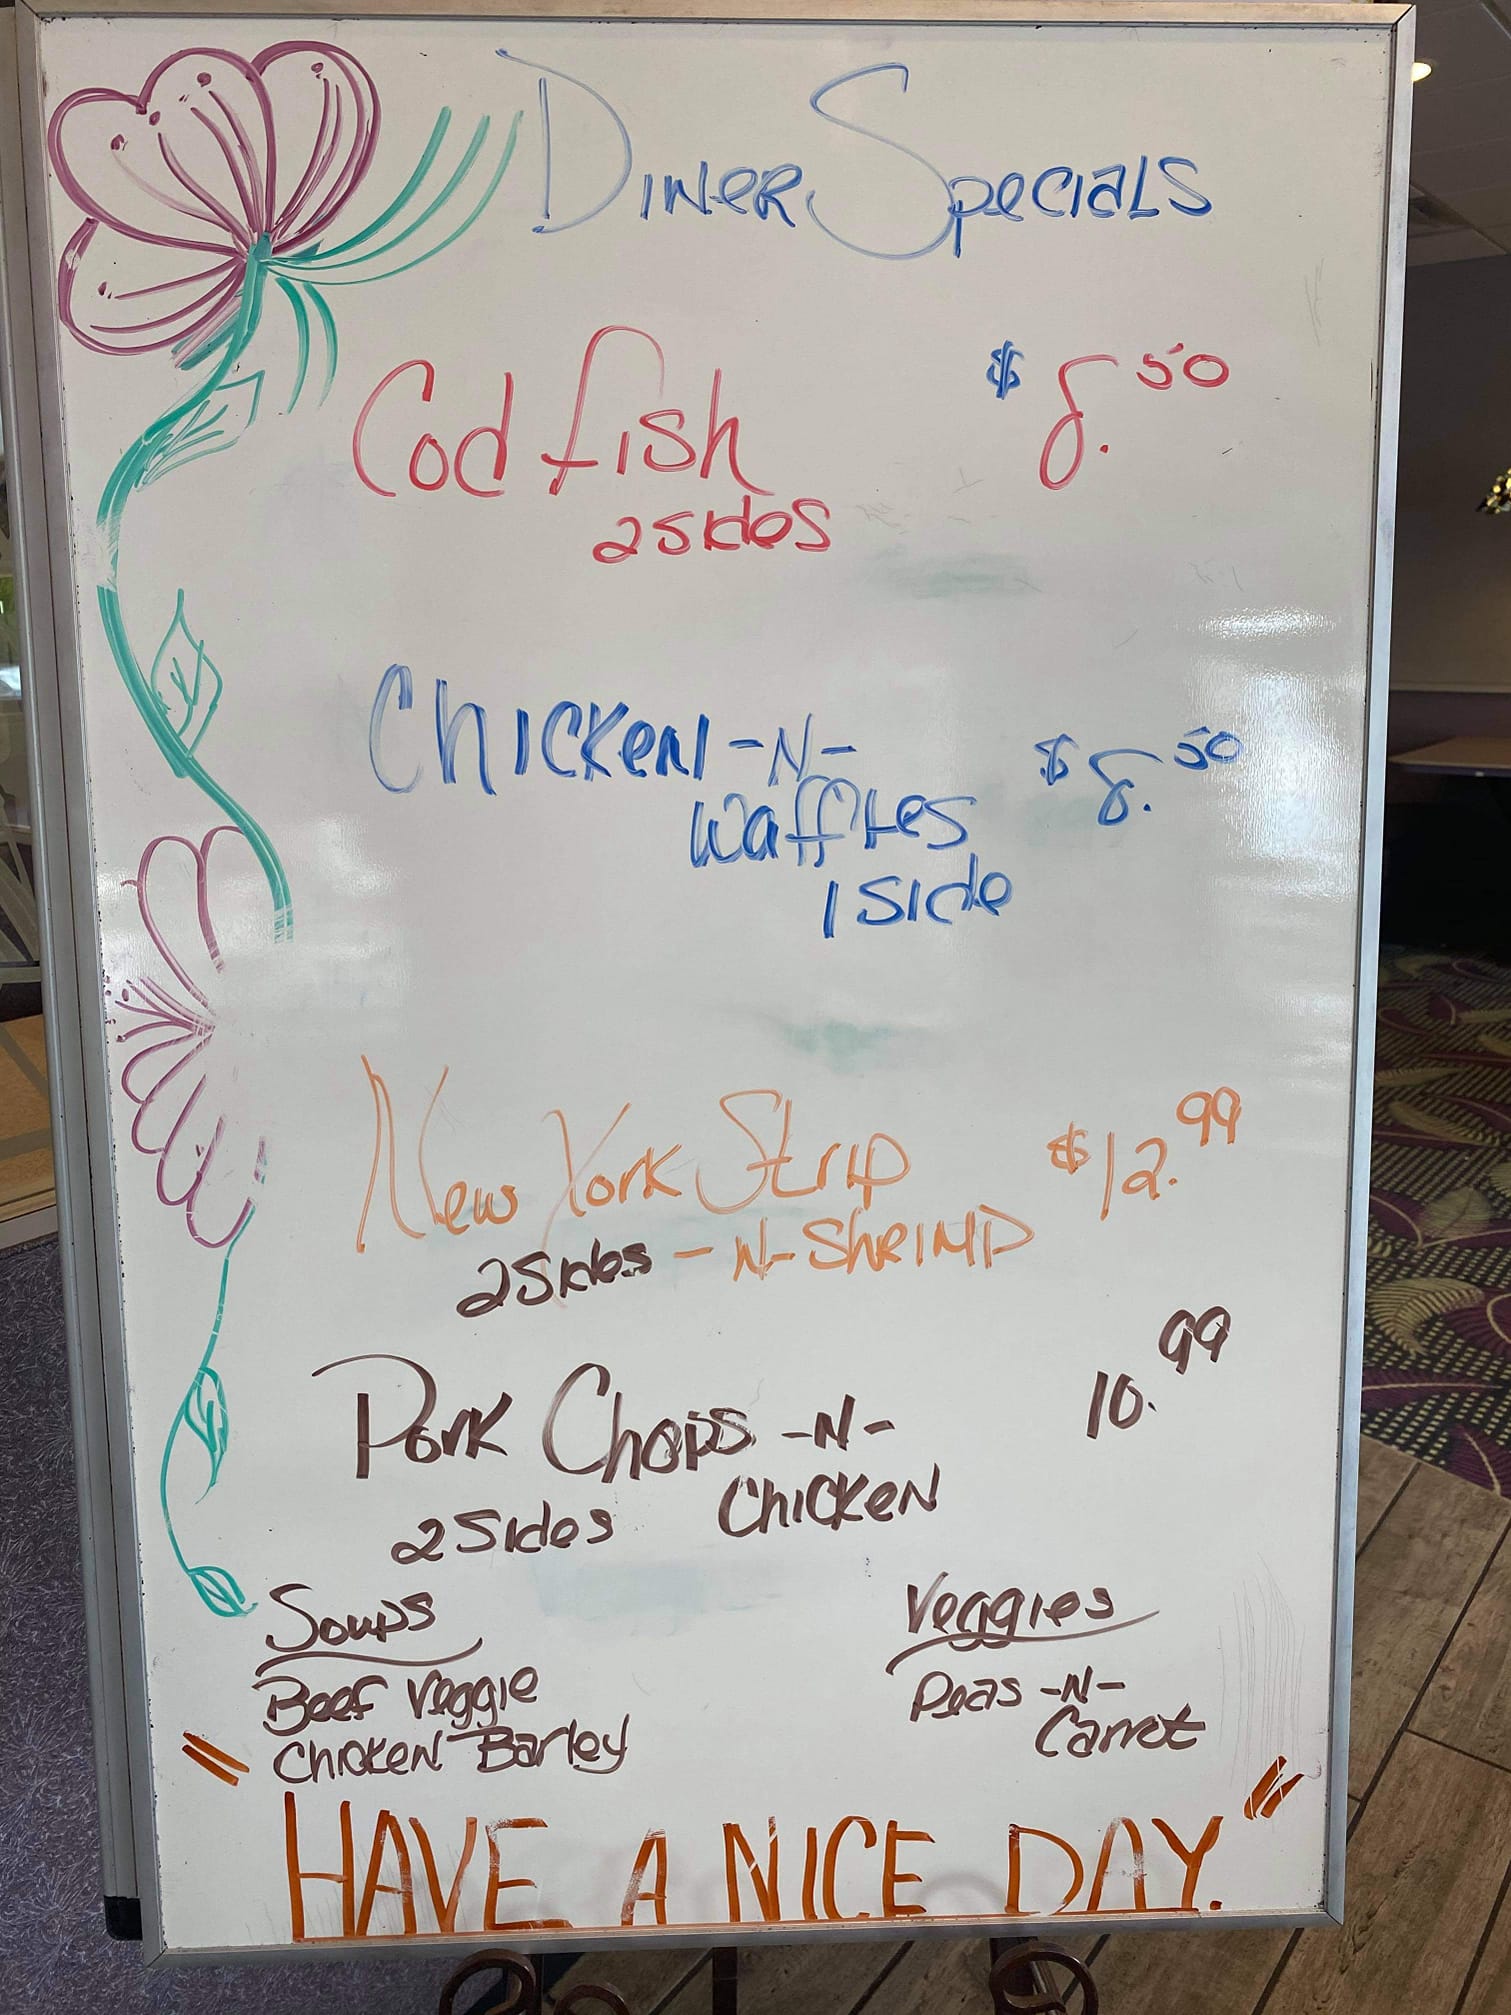 Diner Specials
Cod fish $8.50
2 Sides
Chicken -N- $8.50
Waffles
1 Side
New York Strip $12.99
2 Sides -N- Shrimp
Pork Chops -N- 10.99
2 Sides Chicken
Soups Veggies
Beef Veggie Peas -N-
Chicken Barley Carrot
"HAVE A NICE DAY."